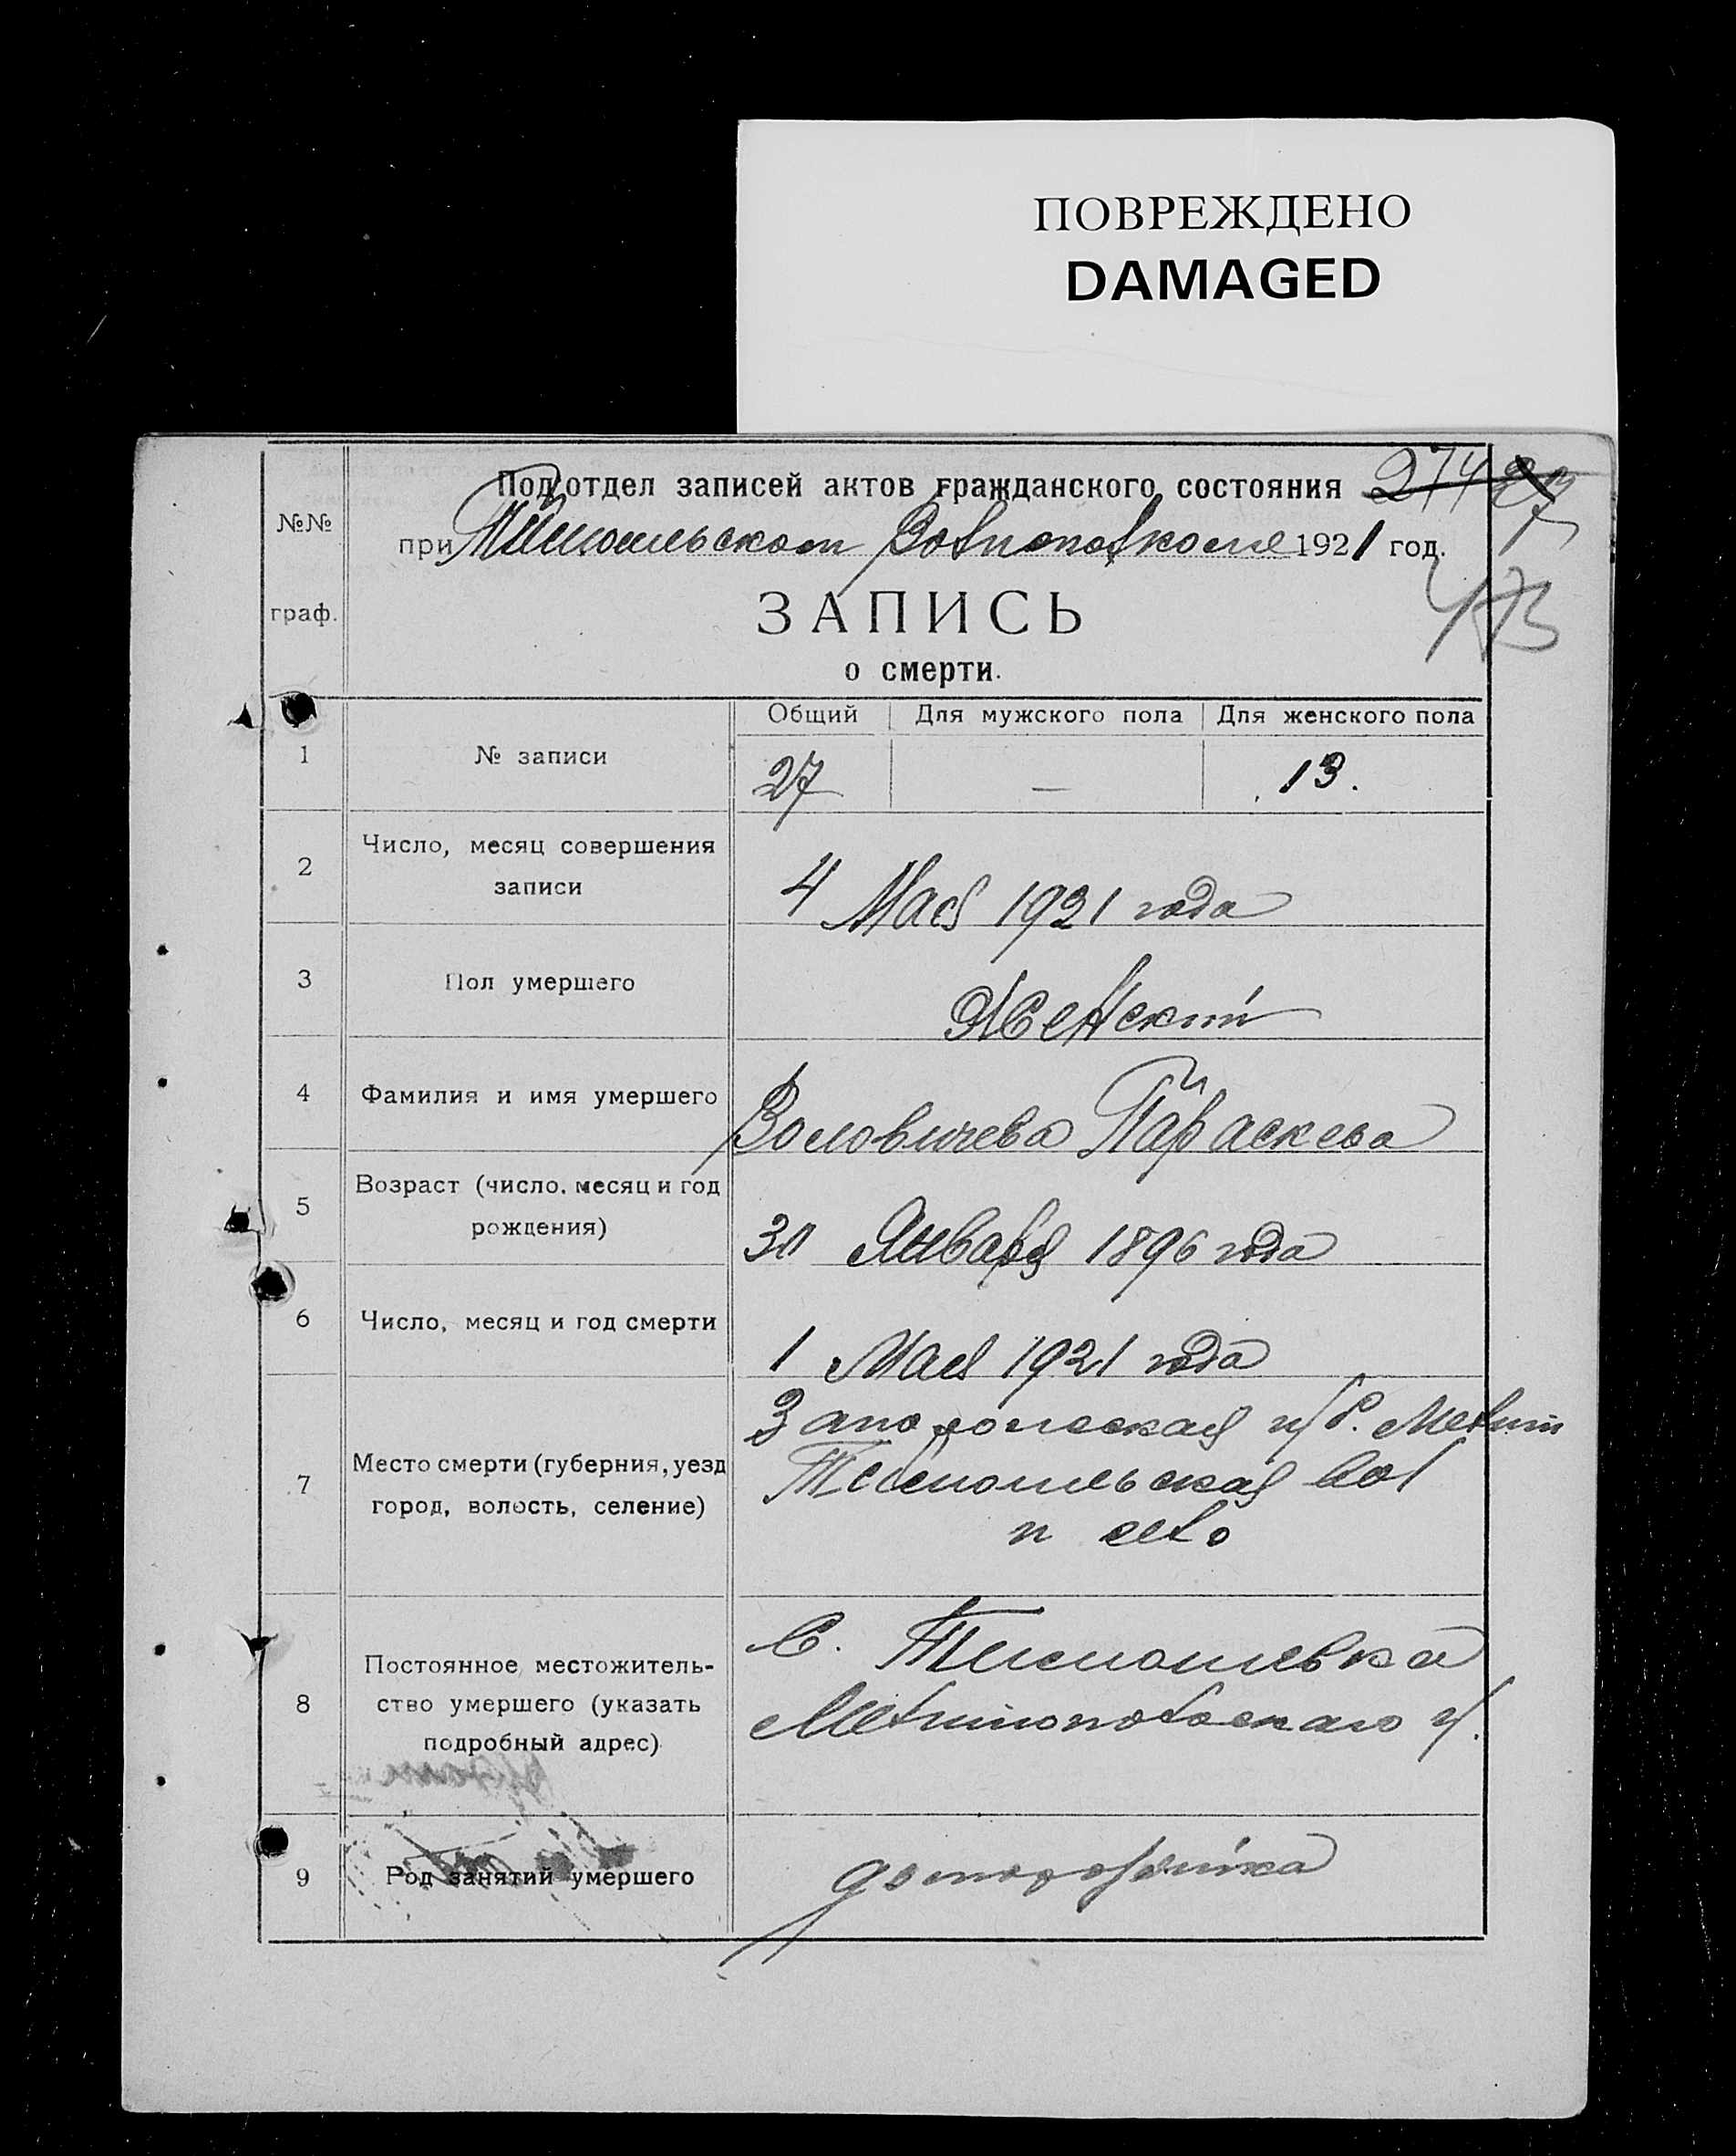 ПОВРЕЖДЕНО
DAMAGED
Подотдел записей актов гражданского состояния 274
при Волисполкоме 1921 год.
473
№№
граф.
ЗАПИСЬ
о смерти.
Общий Для мужского пола Для женского пола
1 № записи 27 — 13.
2 Число, месяц совершения
записи
4 Мая 1921 года
3 Пол умершего Женский
4 Фамилия и имя умершего Воловичева Параскева
5 Возраст (число, месяц и год
рождения)
30 Января 1896 года
6 Число, месяц и год смерти 1 Мая 1921 года
7 Место смерти (губерния, уезд
город, волость, селение)
Запорожская губ. Мелит
Тимошевская вол
и село
8 Постоянное местожитель-
ство умершего (указать
подробный адрес)
С. Тимошевка
Мелитопольскаго у.
9 Род занятий умершего